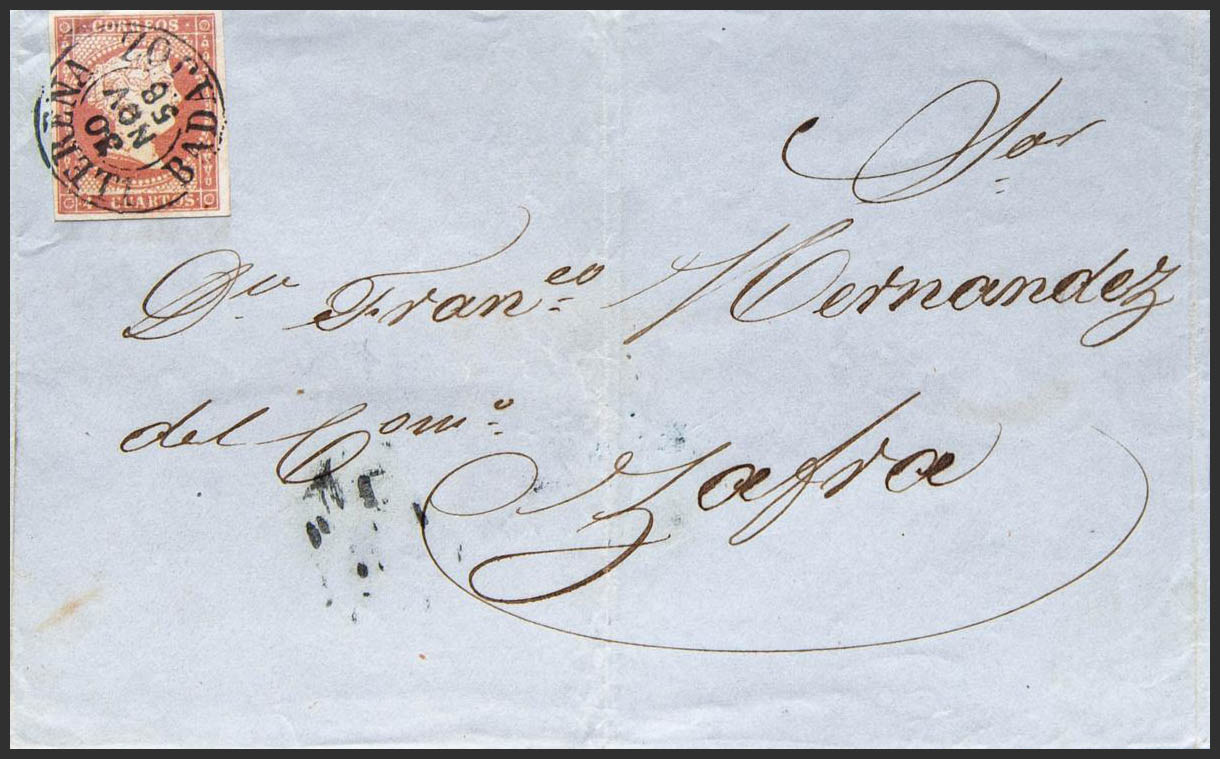 CORREOS
4 CUARTOS
LLERENA
BADAJOZ
30
NOV
58
Sor
Dn Franco Hernandez
del Como
Zafra